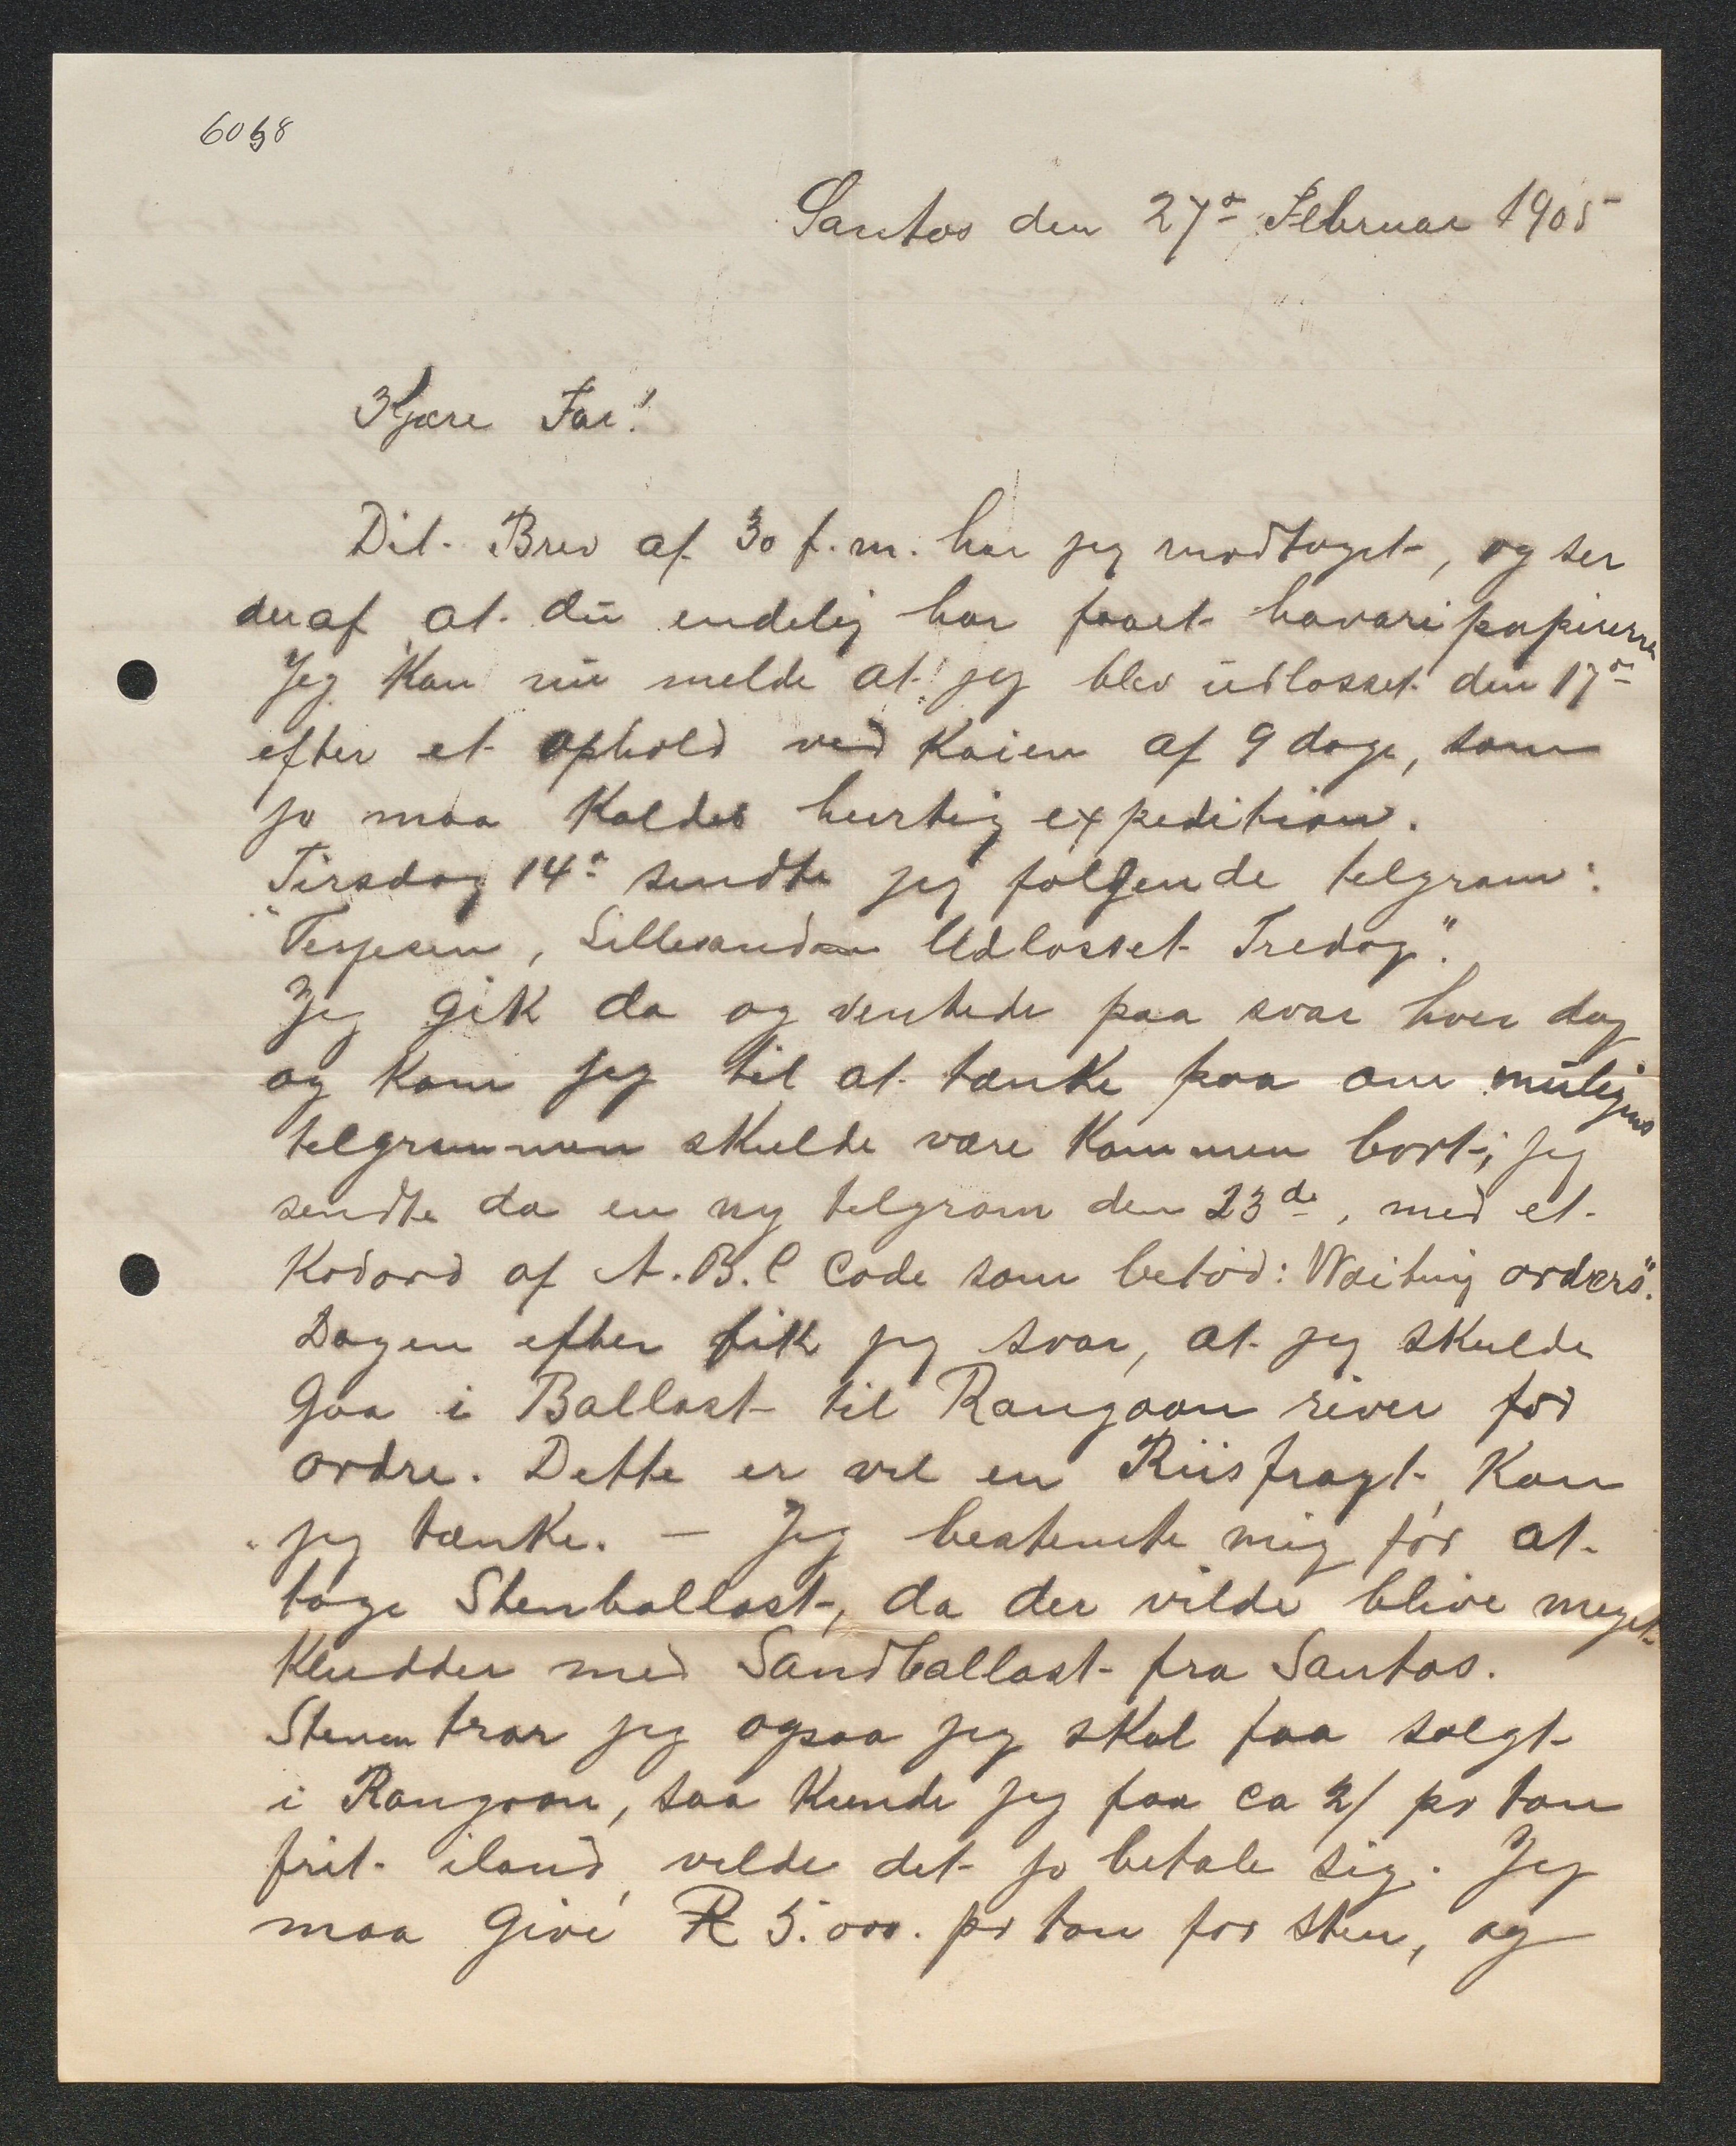 6068
Santos den 27de Februar 1905
Kjære Far!
Dit Brev af 30 f.m. har jeg modtaget, og ser
deraf at dū endelig har faaet havaripapirerne
Jeg kan nū melde at jeg blev ūdlosset den 17de
efter et ophold ved Kaien af 9 dage, som
jo maa kaldes hurtig expedition.
Tirsdag 14de sendte jeg følgende telgram:
"Terjesen, Lillesand Udlosset Fredag".
Jeg gik da og ventede paa svar hver dag
og kom jeg til at tænke paa om mūligens
telgrammen skulde være kommen bort; jeg
sendte da en ny telgram den 23de, med et
Kodord af A.B.C Code som betød: Waiting orders".
Dagen efter fik jeg svar, at jeg skulde
gaa i Ballast til Rangoon river for
ordre. Dette er vel en Riisfragt, kan
jeg tænke. — Jeg bestemte mig for at
tage Stenballast, da der vilde blive meget
Kludder med Sandballast fra Santos.
Stenen tror jeg ogsaa jeg skal faa solgt
i Rangoon, saa kunde jeg faa ca 2/ pr ton
frit iland, vilde det jo betale sig. Jeg
maa give R 5.000. pr ton for sten, og